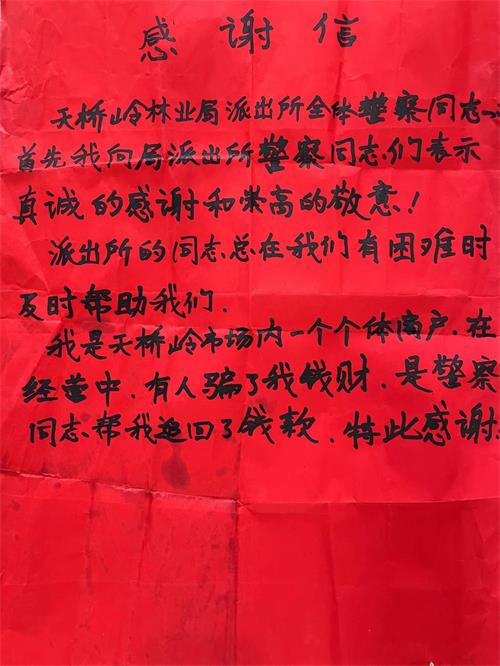 感谢信
天桥岭林业局派出所全体警察同志、
首先我向局派出所警察同志们表示
真诚的感谢和崇高的敬意!
派出所的同志总在我们有困难时
及时帮助我们.
我是天桥岭市场内一个个体商户.在
经营中.有人骗了我钱财.是警察
同志帮我追回了钱款.特此感谢